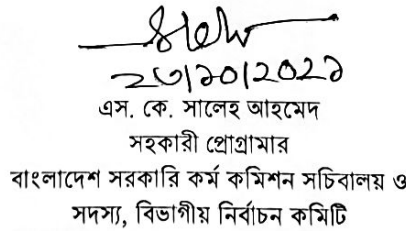 ২৩/১০/২০২১
এস. কে. সালেহ আহমেদ
সহকারী প্রোগ্রামার
বাংলাদেশ সরকারি কর্ম কমিশন সচিবালয় ও
সদস্য, বিভাগীয় নির্বাচন কমিটি